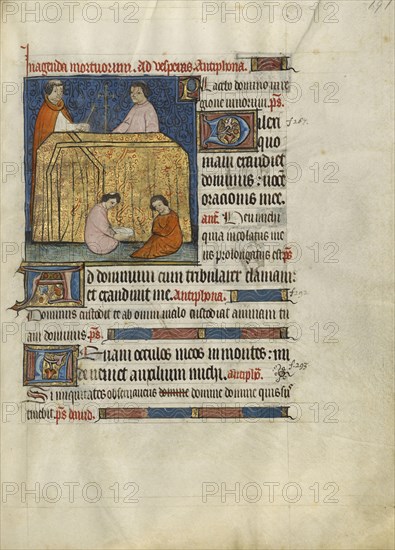 In agenda mortuorum. Ad vesperas Antiphona
Placebo domino in re
gione vivorum. ps.
Dilexi
quo
niam exaudiet
dominus: voce
orationis mee.
ant. Heu michi
quia incolatus me
us prolongatus est ps
Ad dominum cum tribularer clamavi
et exaudivit me. Antiphona
Dominus custodit te ab omni malo custodiat animam tu
am dominus. ps.
Levavi occulos meos in montes: un
de veniet auxilium michi. antiph.
Si iniquitates observaveris domine domine domine quis su
tinebit. ps david.